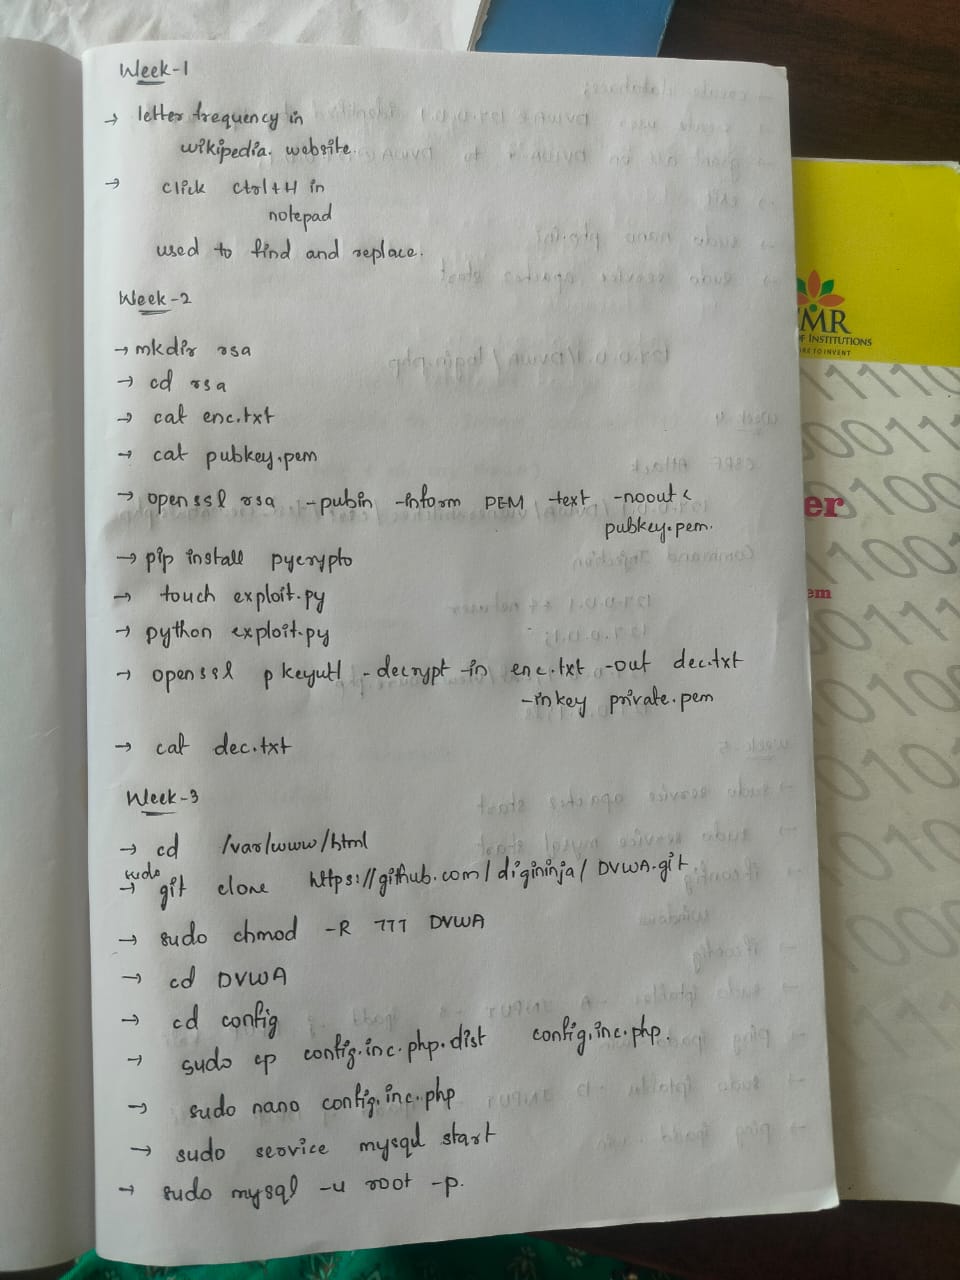 Week-1
→ letter frequency in
wikipedia. website.
→ click ctrl+H in
notepad
used to find and replace.
Week-2
→ mkdir rsa
→ cd rsa
→ cat enc.txt
→ cat pubkey.pem
→ openssl rsa -pubin -inform PEM -text -noout <
pubkey.pem.
→ pip install pycrypto
→ touch exploit.py
→ python exploit.py
→ openssl pkeyutl -decrypt -in enc.txt -out dec.txt
-inkey private.pem
→ cat dec.txt
Week-3
→ cd /var/www/html
→ sudo git clone https://github.com/digininja/DVWA.git
→ sudo chmod -R 777 DVWA
→ cd DVWA
→ cd config
→ sudo cp config.inc.php.dist config.inc.php.
→ sudo nano config.inc.php
→ sudo service mysql start
→ sudo mysql -u root -p.
MR
OF INSTITUTIONS
TO INVENT
er
em